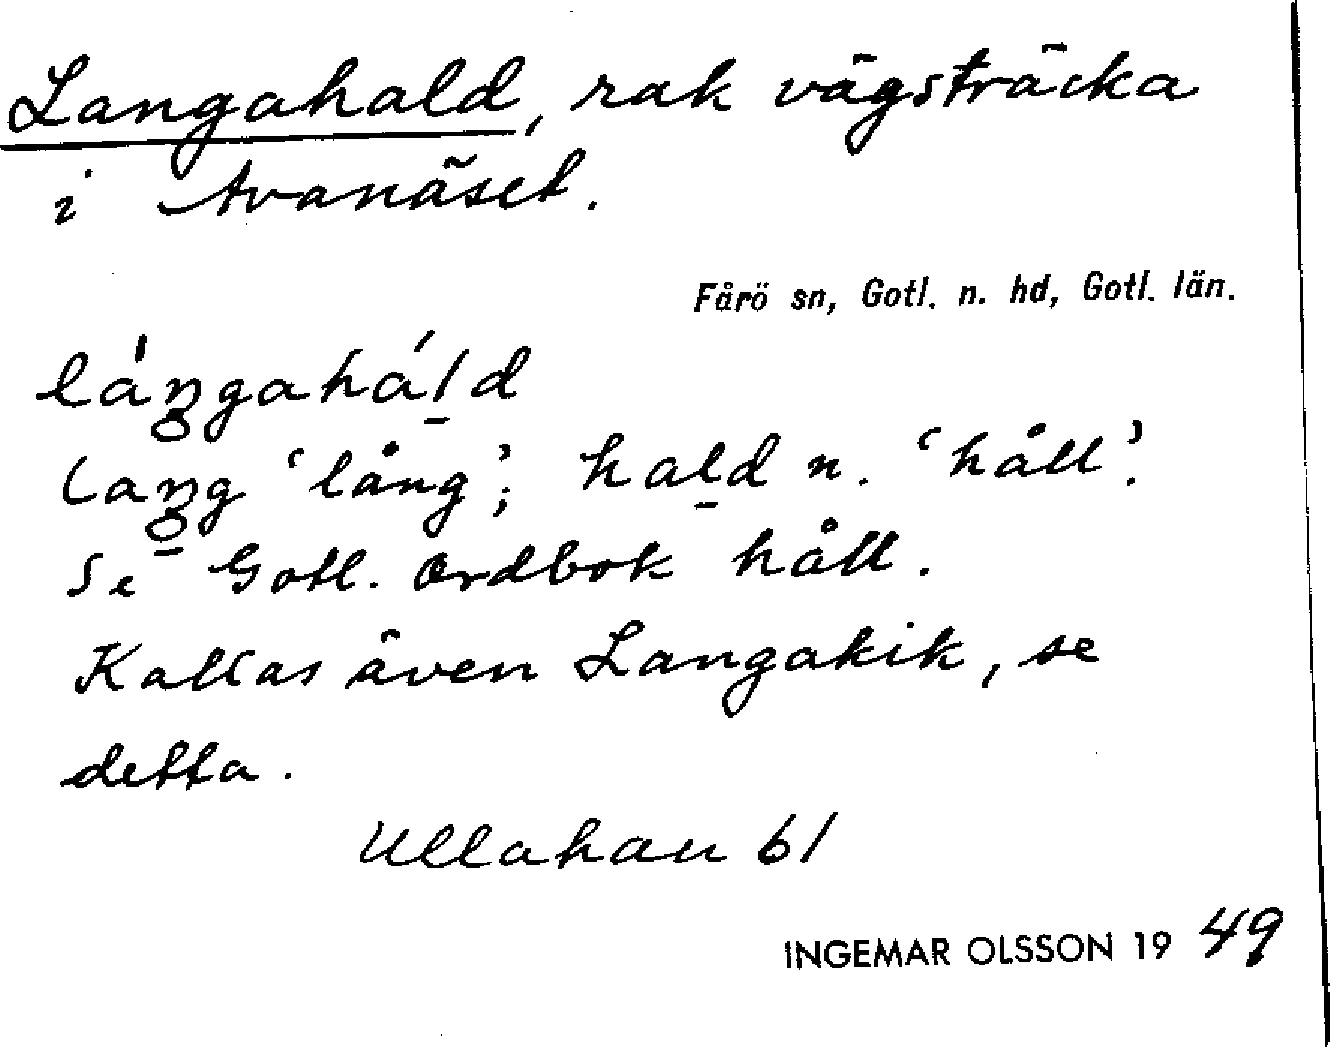 Langahald, rak vägsträcka
i Avanäset.
Fårö sn, Gotl. n. hd, Gotl. län.
láŋgahál̠d
laŋg 'lång'; hal̠d n. 'håll'.
Se Gotl. Ordbok håll.
Kallas även Langakik, se
detta.
Ullahau 61
INGEMAR OLSSON 19 49